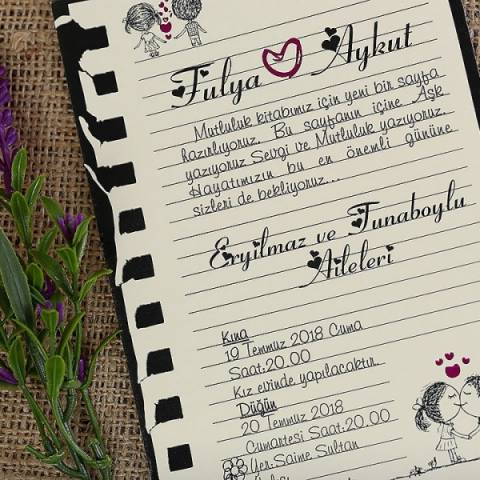 Fulya Aykut
Mutluluk kitabımız için yeni bir sayfa
hazırlıyoruz. Bu sayfanın içine Aşk
yazıyoruz Sevgi ve Mutluluk yazıyoruz.
Hayatımızın bu en önemli gününe
sizleri de bekliyoruz...
Eryilmaz ve Tunaboylu
Aileleri
Kına
19 Temmuz 2018 Cuma
Saat:20.00
Kız evinde yapılacaktır.
Düğün
20 Temmuz 2018
Cumartesi Saat:20.00
Yer:Saime Sultan